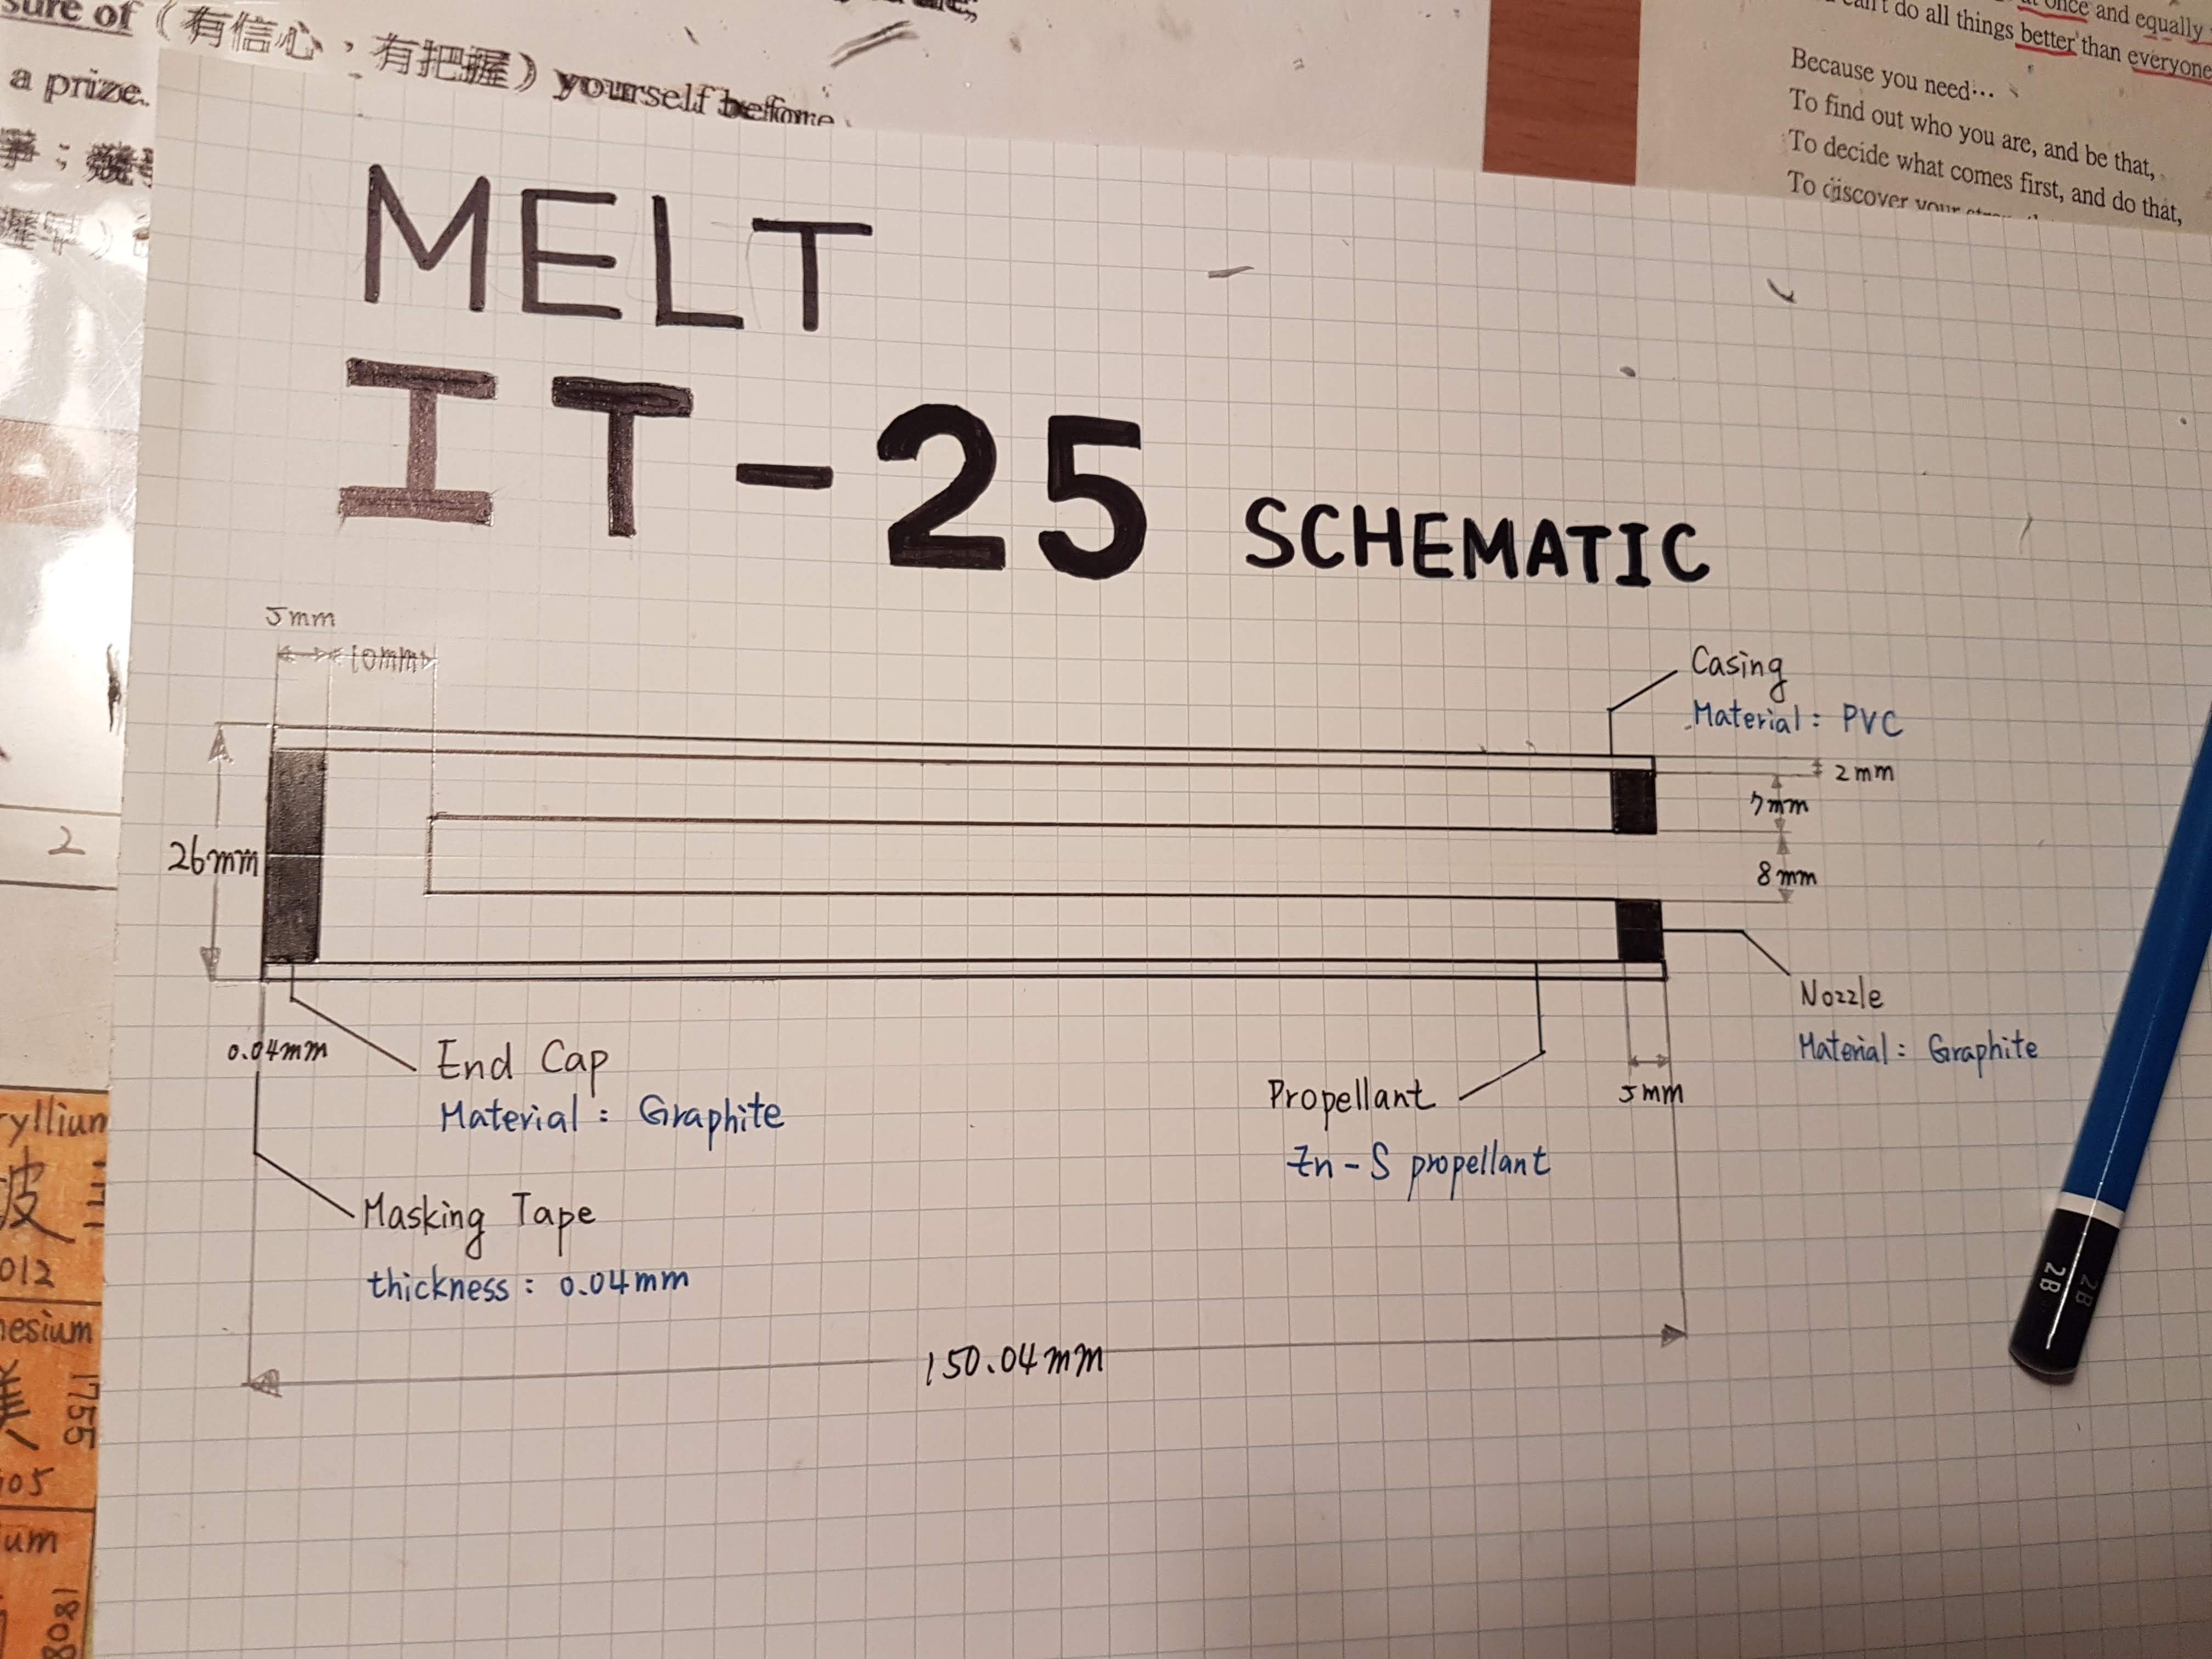 sure of（有信心，有把握）yourself before
a prize.
once and equally
can't do all things better than everyone
Because you need…
To find out who you are, and be that,
To decide what comes first, and do that,
To discover your
MELT
IT-25 SCHEMATIC
5mm
10mm
Casing
Material: PVC
2mm
7mm
8mm
26mm
2
Nozzle
Material: Graphite
0.04mm
End Cap
Material: Graphite
5mm
Propellant
Zn-S propellant
Masking Tape
thickness: 0.04mm
150.04mm
2B
2B
yllium
012
nesium
1755
um
1808